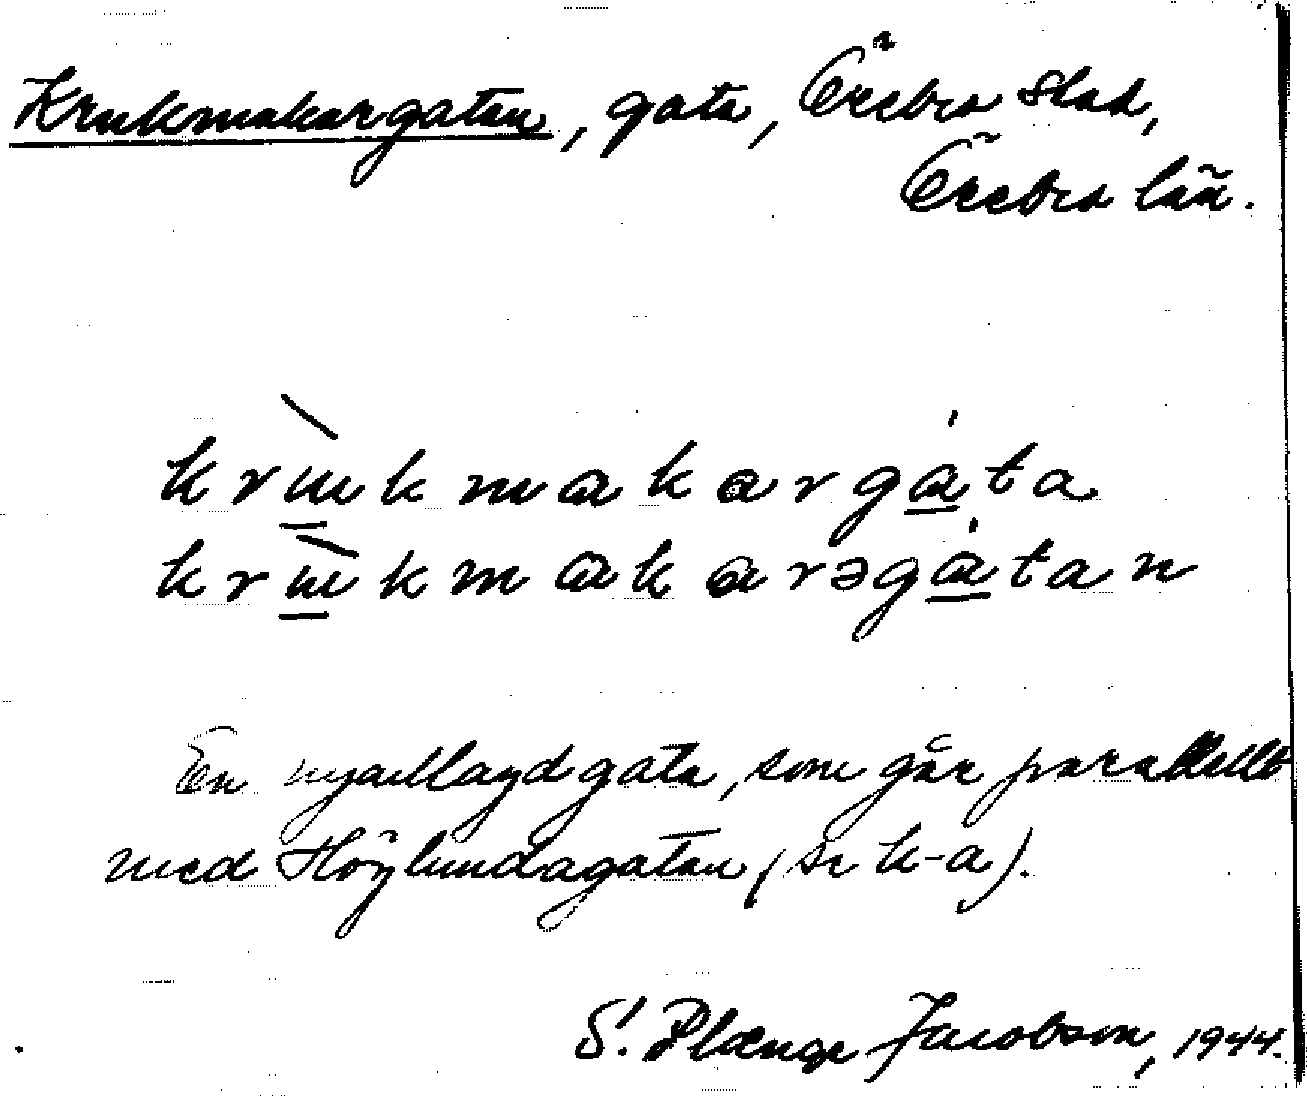 Krukmakargatan, gata, Örebro stad,
Örebro län.
krɯ̀kmakargáta
krɯ̀kmakarəgátan
En nyanlagd gata, som går parallellt
med Höglundagatan (se k-a).
S. Plænge Jacobson, 1944.